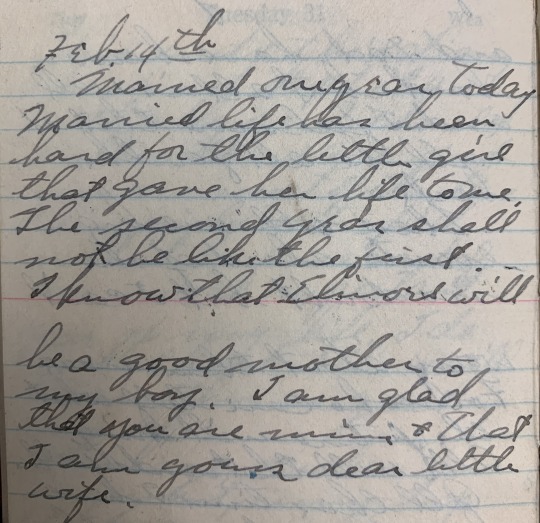 Tuesday 31
Feb. 14th
Married one year today
Married life has been
hard for the little girl
that gave her life to me.
The second year shall
not be like the first.
I know that Elinore will
be a good mother to
my boy. I am glad
that you are mine & that
I am yours dear little
wife.